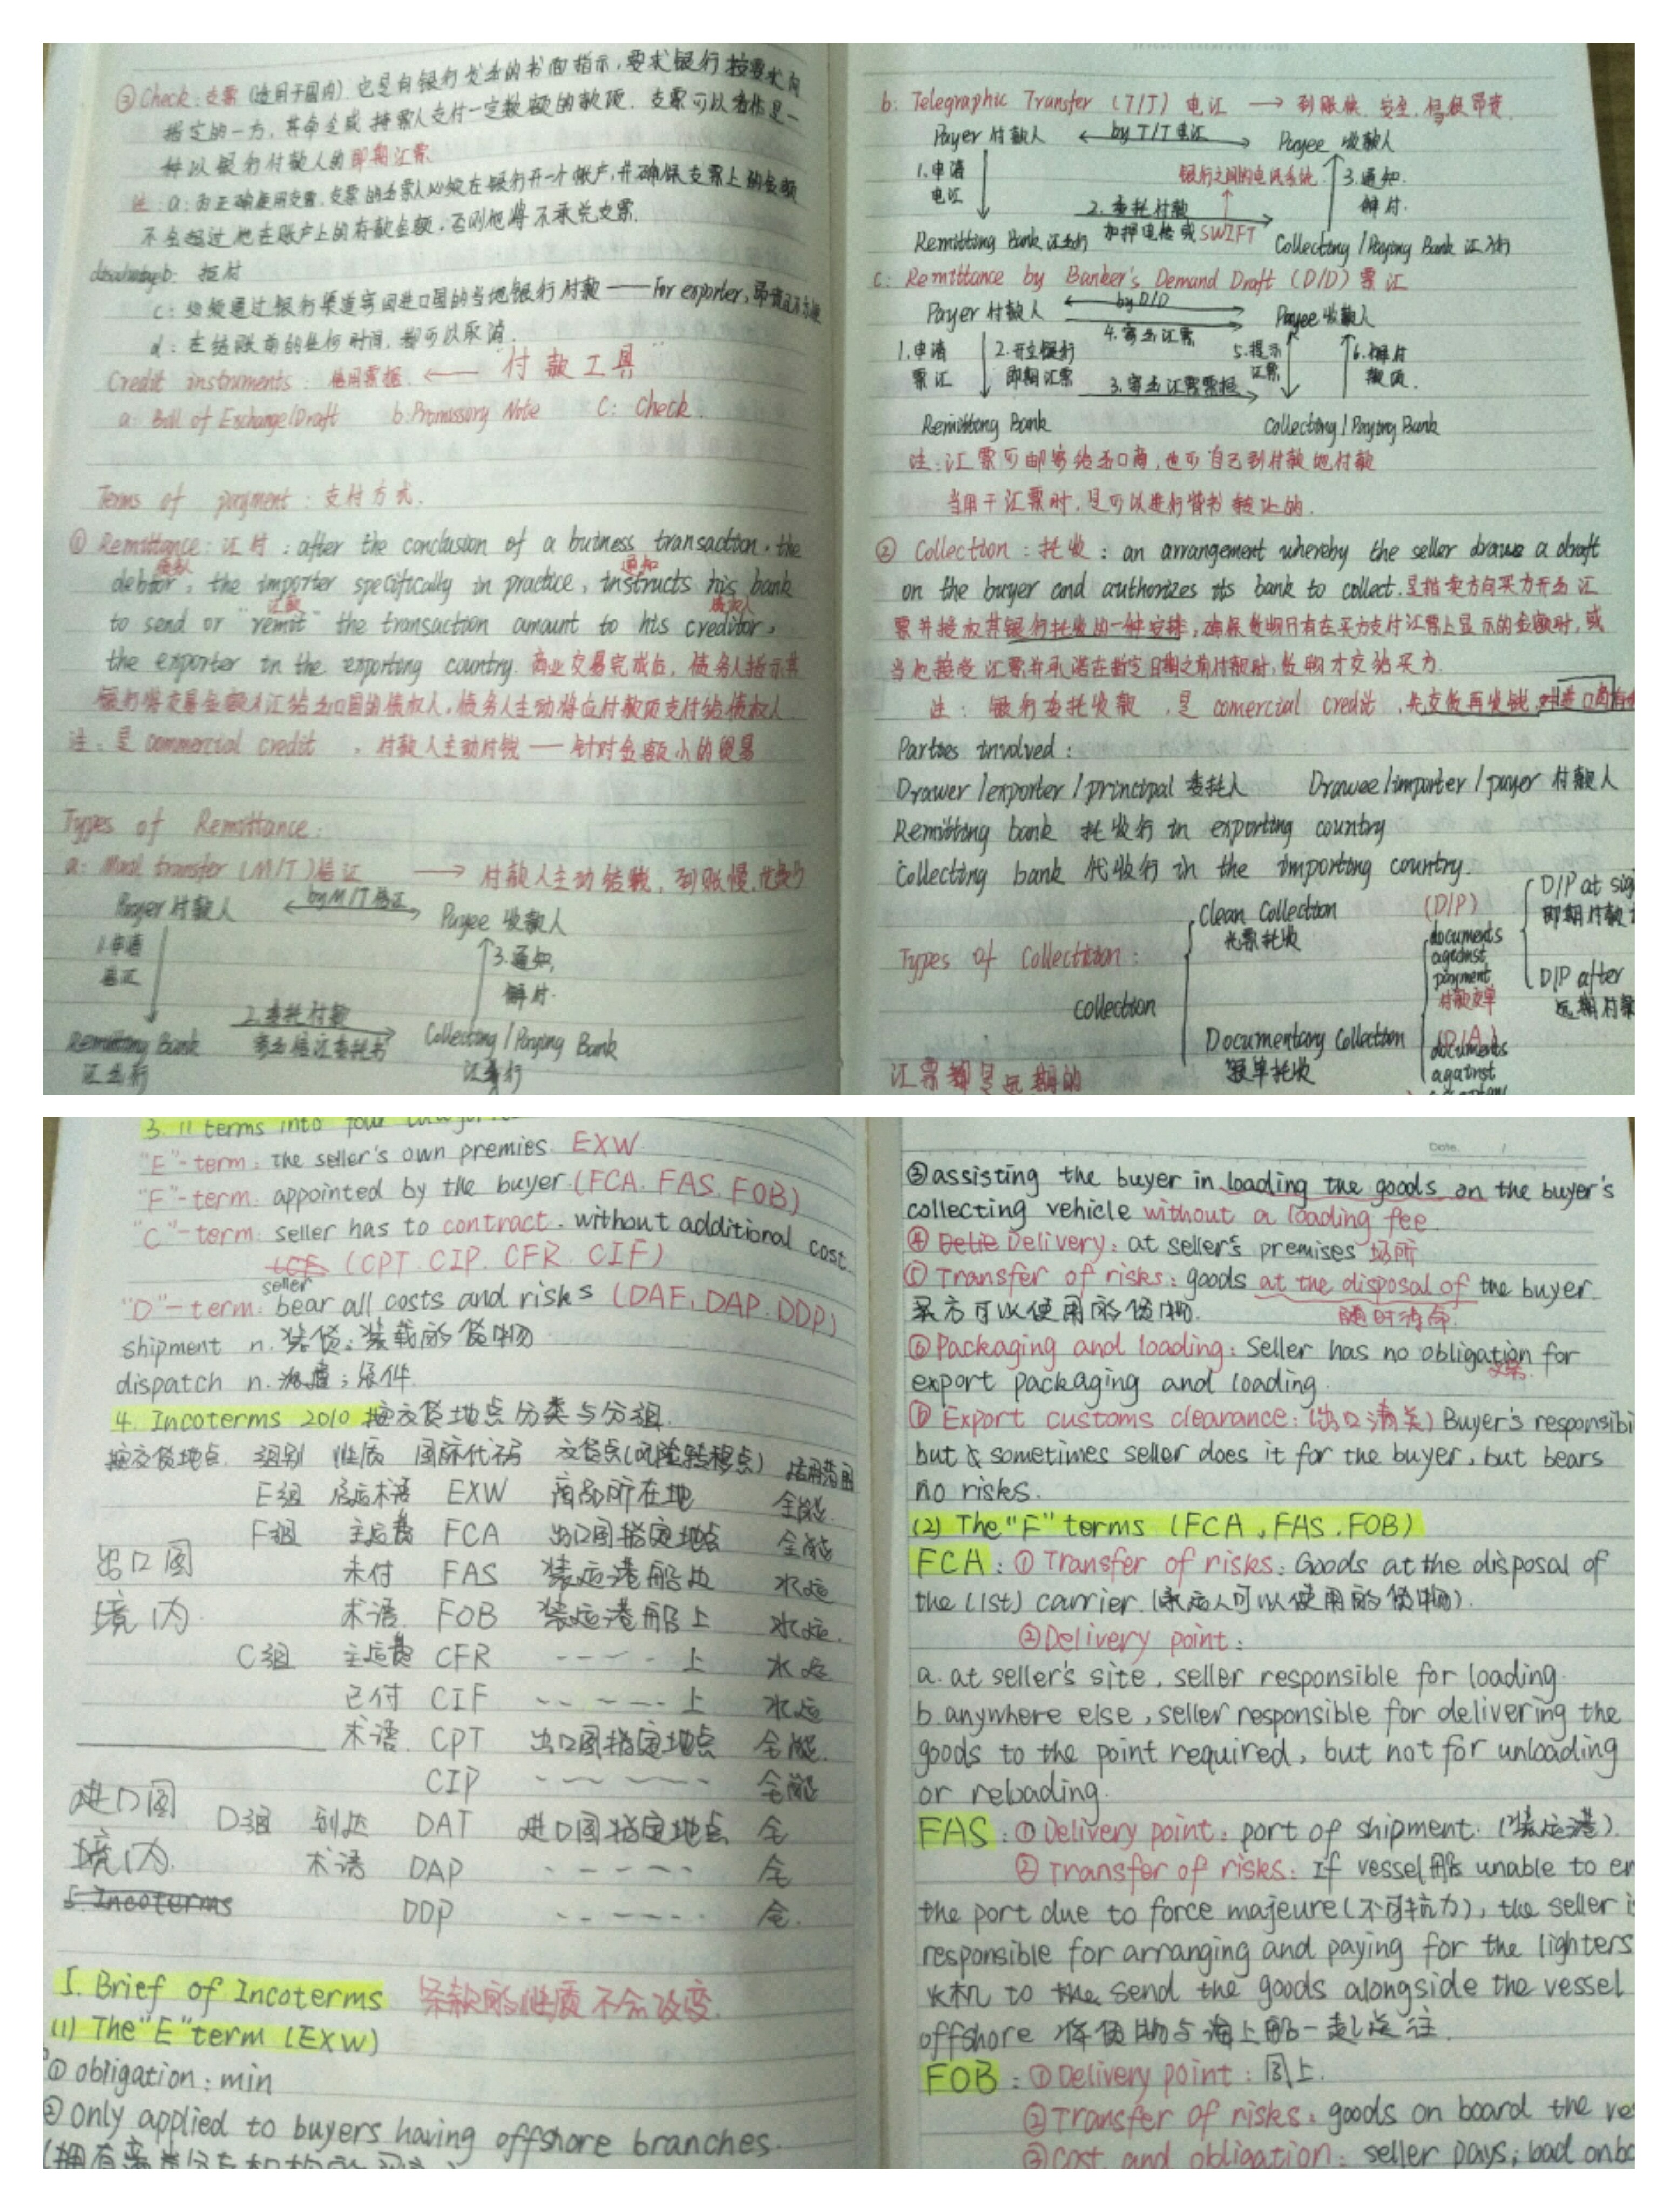 ③ Check: 支票 (适用于国内). 它是向银行发出的书面指示, 要求银行按要求向
指定的一方, 其命令或持票人支付一定数额的款项. 支票可以看作是一
种以银行付款人的即期汇票
注: a: 为正确使用支票, 支票的出票人必须在银行开一个帐户, 并确保支票上的金额
不会超过他在账户上的存款金额, 否则他将不承兑支票.
b: 拒付
c: 必须通过银行渠道寄回进口国的当地银行付款 —— For exporter, 昂贵且不方便
d: 在结账前的任何时间, 都可以取消.
Credit instruments: 信用票据 ← "付款工具"
a: Bill of Exchange/Draft b: Promissory Note C: Check.
Terms of payment: 支付方式.
① Remittance: 汇付: after the conclusion of a business transaction, the
debtor, the importer specifically in practice, instructs his bank
债务人 通知
to send or "remit" the transaction amount to his creditor,
汇款 债权人
the exporter in the exporting country. 商业交易完成后, 债务人指示其
银行将交易金额汇给出口国的债权人. 债务人主动将应付款项支付给债权人.
注: 是 commercial credit, 付款人主动付钱 —— 针对金额小的贸易
Types of Remittance:
a: Mail transfer (M/T) 信汇 → 付款人主动结钱, 到账慢,
Payer 付款人 by M/T 信汇 Payee 收款人
1. 申请
信汇
3. 通知,
解付.
2. 委托付款
寄出信汇委托书
Remitting Bank
汇出行
Collecting/Paying Bank
汇入行
b: Telegraphic Transfer (T/T) 电汇 → 到账快, 安全, 但很昂贵.
Payer 付款人 by T/T 电汇 Payee 收款人
1. 申请
电汇
银行之间的电讯系统
3. 通知.
解付.
2. 委托付款
加押电传或 SWIFT
Remitting Bank 汇出行 Collecting/Paying Bank 汇入行
c: Remittance by Banker's Demand Draft (D/D) 票汇
Payer 付款人 by D/D Payee 收款人
4. 寄出汇票
1. 申请
票汇
2. 开立银行
即期汇票
3. 寄出汇票票根
5. 提示
汇票
6. 解付
款项.
Remitting Bank Collecting/Paying Bank
注: 汇票可邮寄给出口商, 也可自己到付款地付款
当用于汇票时, 是可以进行背书转让的.
② Collection: 托收: an arrangement whereby the seller draws a draft
on the buyer and authorizes its bank to collect. 是指卖方向买方开出汇
票并授权其银行托收的一种安排, 确保货物只有在买方支付汇票上显示的金额时, 或
当他接受汇票并承诺在指定日期之前付款时, 货物才交给买方.
注: 银行委托收款, 是 comercial credit, 先交货再收钱,
Parties involved:
Drawer/exporter/principal 委托人 Drawee/importer/payer 付款人
Remitting bank 托收行 in exporting country
Collecting bank 代收行 in the importing country.
Types of Collection:
collection
Clean Collection
光票托收
Documentary Collection
跟单托收
(D/P)
documents
against
payment
付款交单
(D/A)
documents
against
D/P at sig
即期付款
D/P after
远期付款
汇票都是远期的
3. 11 terms into four
"E"-term: The seller's own premies. EXW.
"F"-term: appointed by the buyer. (FCA. FAS. FOB)
"C"-term: seller has to contract. without additional cost.
(CPT. CIP. CFR. CIF)
seller
"D"-term: bear all costs and risks (DAF, DAP. DDP)
shipment n. 装货; 装载的货物
dispatch n. 派遣; 急件.
4. Incoterms 2010 按交货地点分类与分组.
按交货地点. 组别 性质 国际代码 交货点(风险转移点) 适用范围
E组 启运术语 EXW 商品所在地 全能.
F组 主运费 FCA 出口国指定地点 全能
出口国 未付 FAS 装运港船边 水运
境内. 术语. FOB 装运港船上 水运.
C组 主运费 CFR ----上 水运
已付 CIF -----上 水运
术语. CPT 出口国指定地点 全能.
CIP ----- 全能
进口国 D组 到达 DAT 进口国指定地点 全
境内. 术语 DAP ----- 全
5. Incoterms DDP ----- 全.
5. Brief of Incoterms 条款的性质不会改变.
(1) The "E" term (EXW)
① obligation: min
② only applied to buyers having offshore branches.
③ assisting the buyer in loading the goods on the buyer's
collecting vehicle without a loading fee.
④ Delie Delivery: at seller's premises 场所
⑤ Transfer of risks: goods at the disposal of the buyer.
买方可以使用的货物. 随时待命.
⑥ Packaging and loading: Seller has no obligation for
export packaging and loading.
⑦ Export customs clearance: (出口清关) Buyer's responsibi
but sometimes seller does it for the buyer, but bears
no risks.
(2) The "F" terms (FCA, FAS, FOB)
FCA: ① Transfer of risks: Goods at the disposal of
the (1st) carrier. (承运人可以使用的货物).
② Delivery point:
a. at seller's site, seller responsible for loading.
b. anywhere else, seller responsible for delivering the
goods to the point required, but not for unloading
or reloading.
FAS: ① Delivery point: port of shipment. (装运港).
② Transfer of risks: If vessel 船 unable to en
the port due to force majeure (不可抗力), the seller i
responsible for arranging and paying for the lighters
火机 to the send the goods alongside the vessel
offshore 将货物与海上船一起送往.
FOB: ① Delivery point: 同上.
② Transfer of risks: goods on board the ve
③ Cost and obligation: seller pays; load onbo
Date. /